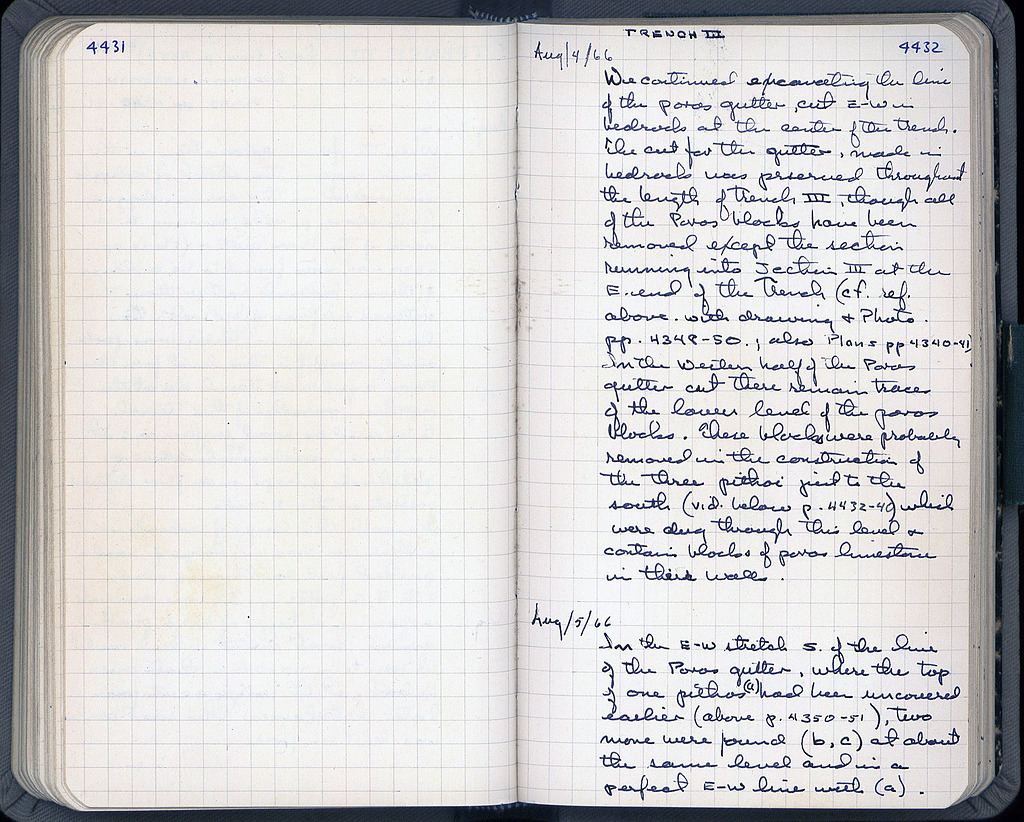 4431
TRENCH III
4432
Aug/4/66
We continued excavating the line
of the poros gutter, cut E-W in
bedrock at the center of the trench.
The cut for the gutter, made in
bedrock was preserved throughout
the length of trench III, though all
of the Poros blocks have been
removed except the section
running into Section III at the
E. end of the Trench (cf. ref.
above. with drawing + Photo.
pp. 4348-50., also Plans pp 4340-41)
In the Western half of the Poros
gutter cut there remain traces
of the lower level of the poros
blocks. These blocks were probably
removed in the construction of
the three pithoi just to the
south (vid. below p. 4432-40) which
were dug through this level &
contain blocks of poros limestone
in their walls.
Aug/5/66
In the E-W stretch S. of the line
of the Poros gutter, where the top
of one pithos (a) had been uncovered
earlier (above p. 4350-51), two
more were found (b, c) at about
the same level and in a
perfect E-W line with (a).